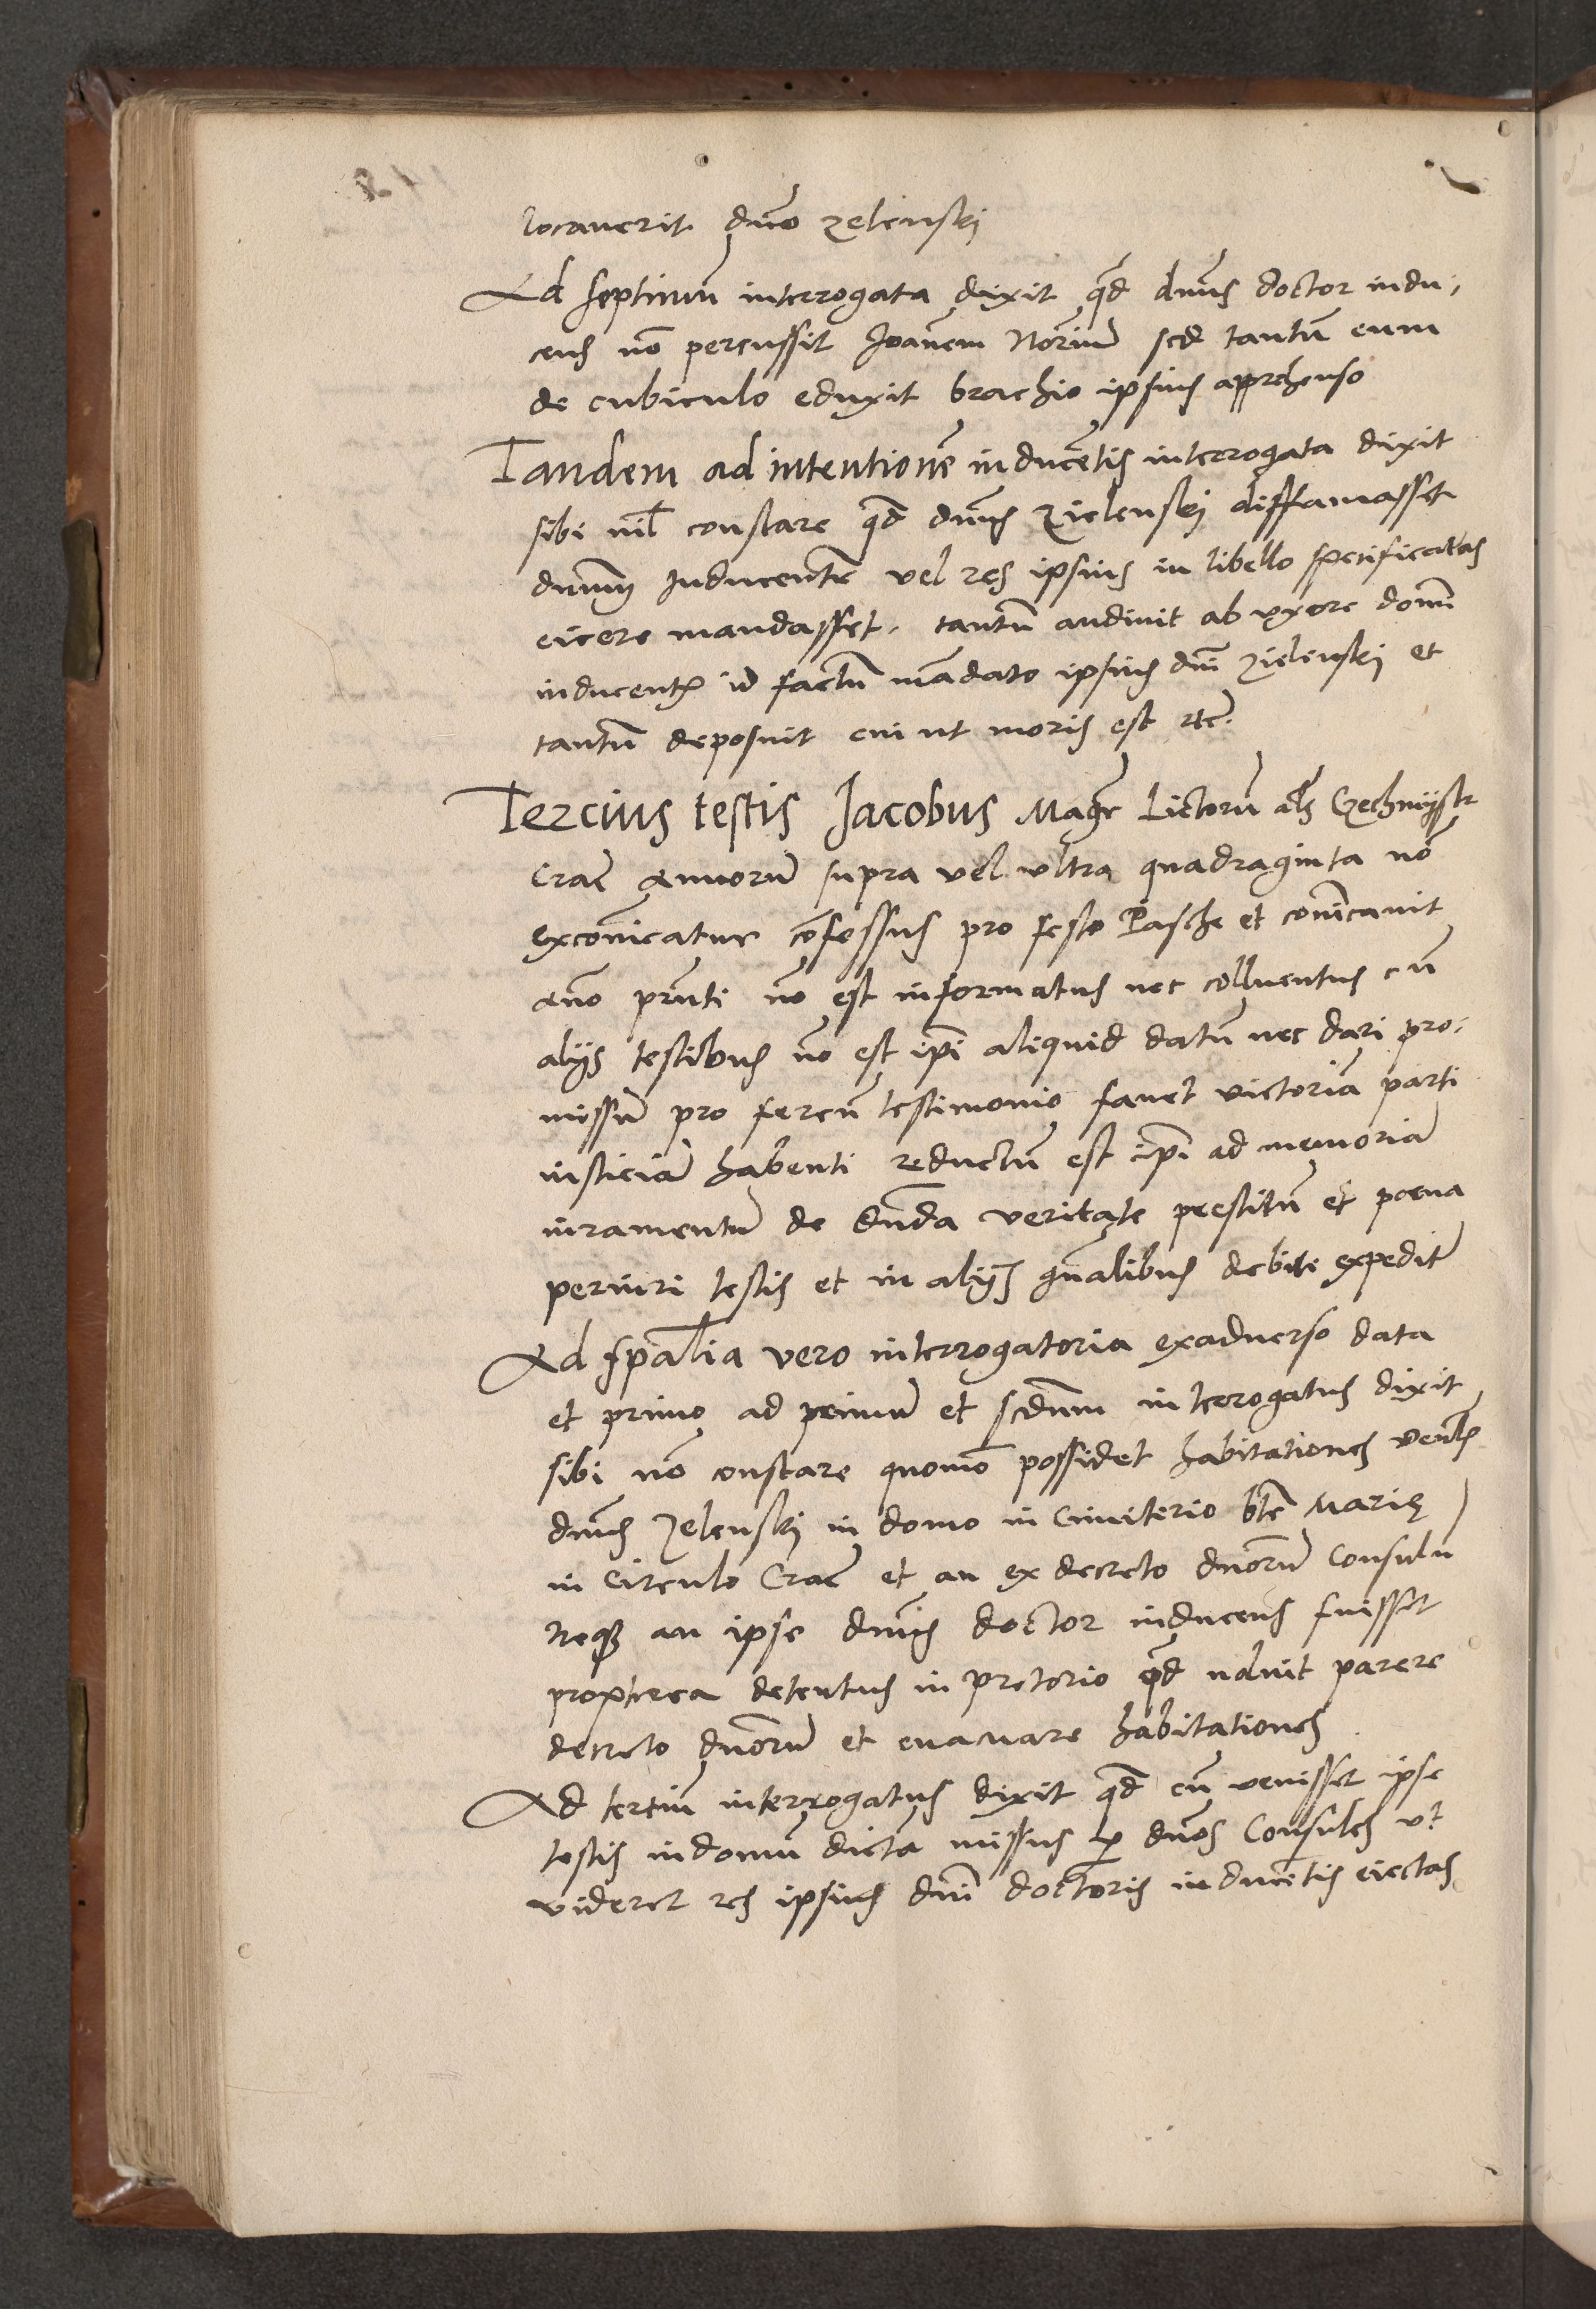 locaverit dno zelenski
Ad septimu interrogata dixit qd dnus doctor indu-
cens no percussit Joanem Norinu sed tantu eum
de cubiculo eduxit brachio ipsius apprehenso
Tandem ad intentione inducetis interrogata dixit
sibi nil constare qd dnus Zielenski diffamasset
dnum Inducente vel res ipsius in libello specificatas
eicere mandasset. tantu audivit ab uxore domi
inducent id factu madato ipsius dni zielenski et
tantu deposuit cui ut moris est etc.
Tercius testis Jacobus Magr Lictoru als Czechmystr
Crac annoru supra vel ultra quadraginta no
excoicatur cofessus pro festo Pasche et coicavit
ano prnti no est informatus nec colluentus cu
aliis testibus no est ipi aliquid datu nec dari pro-
missu pro feren testimonio favet victoria parti
iusticia habenti reductu est ipi ad memoria
iuramentu de dnda veritate prestitu et poena
periuri testis et in aliis gnalibus debite expedit
Ad spalia vero interrogatoria exadverso data
et primo ad primu et scdum interrogatus dixit
sibi no constare quomo possidet habitationes
dnus Zelenski in domo in Cimiterio bte Marie
in Circulo Crac et an ex decreto dnoru Consulu
Neq an ipse dnus doctor inducens fuisset
propterea detentus in pretorio qd noluit parere
decreto dnoru et evacuare habitationes
Ad tertiu interrogatus dixit qd cu venisset ipse
testis in domu dicta missus p dnos Consules ut
videret res ipsius dni doctoris inducetis eiectas